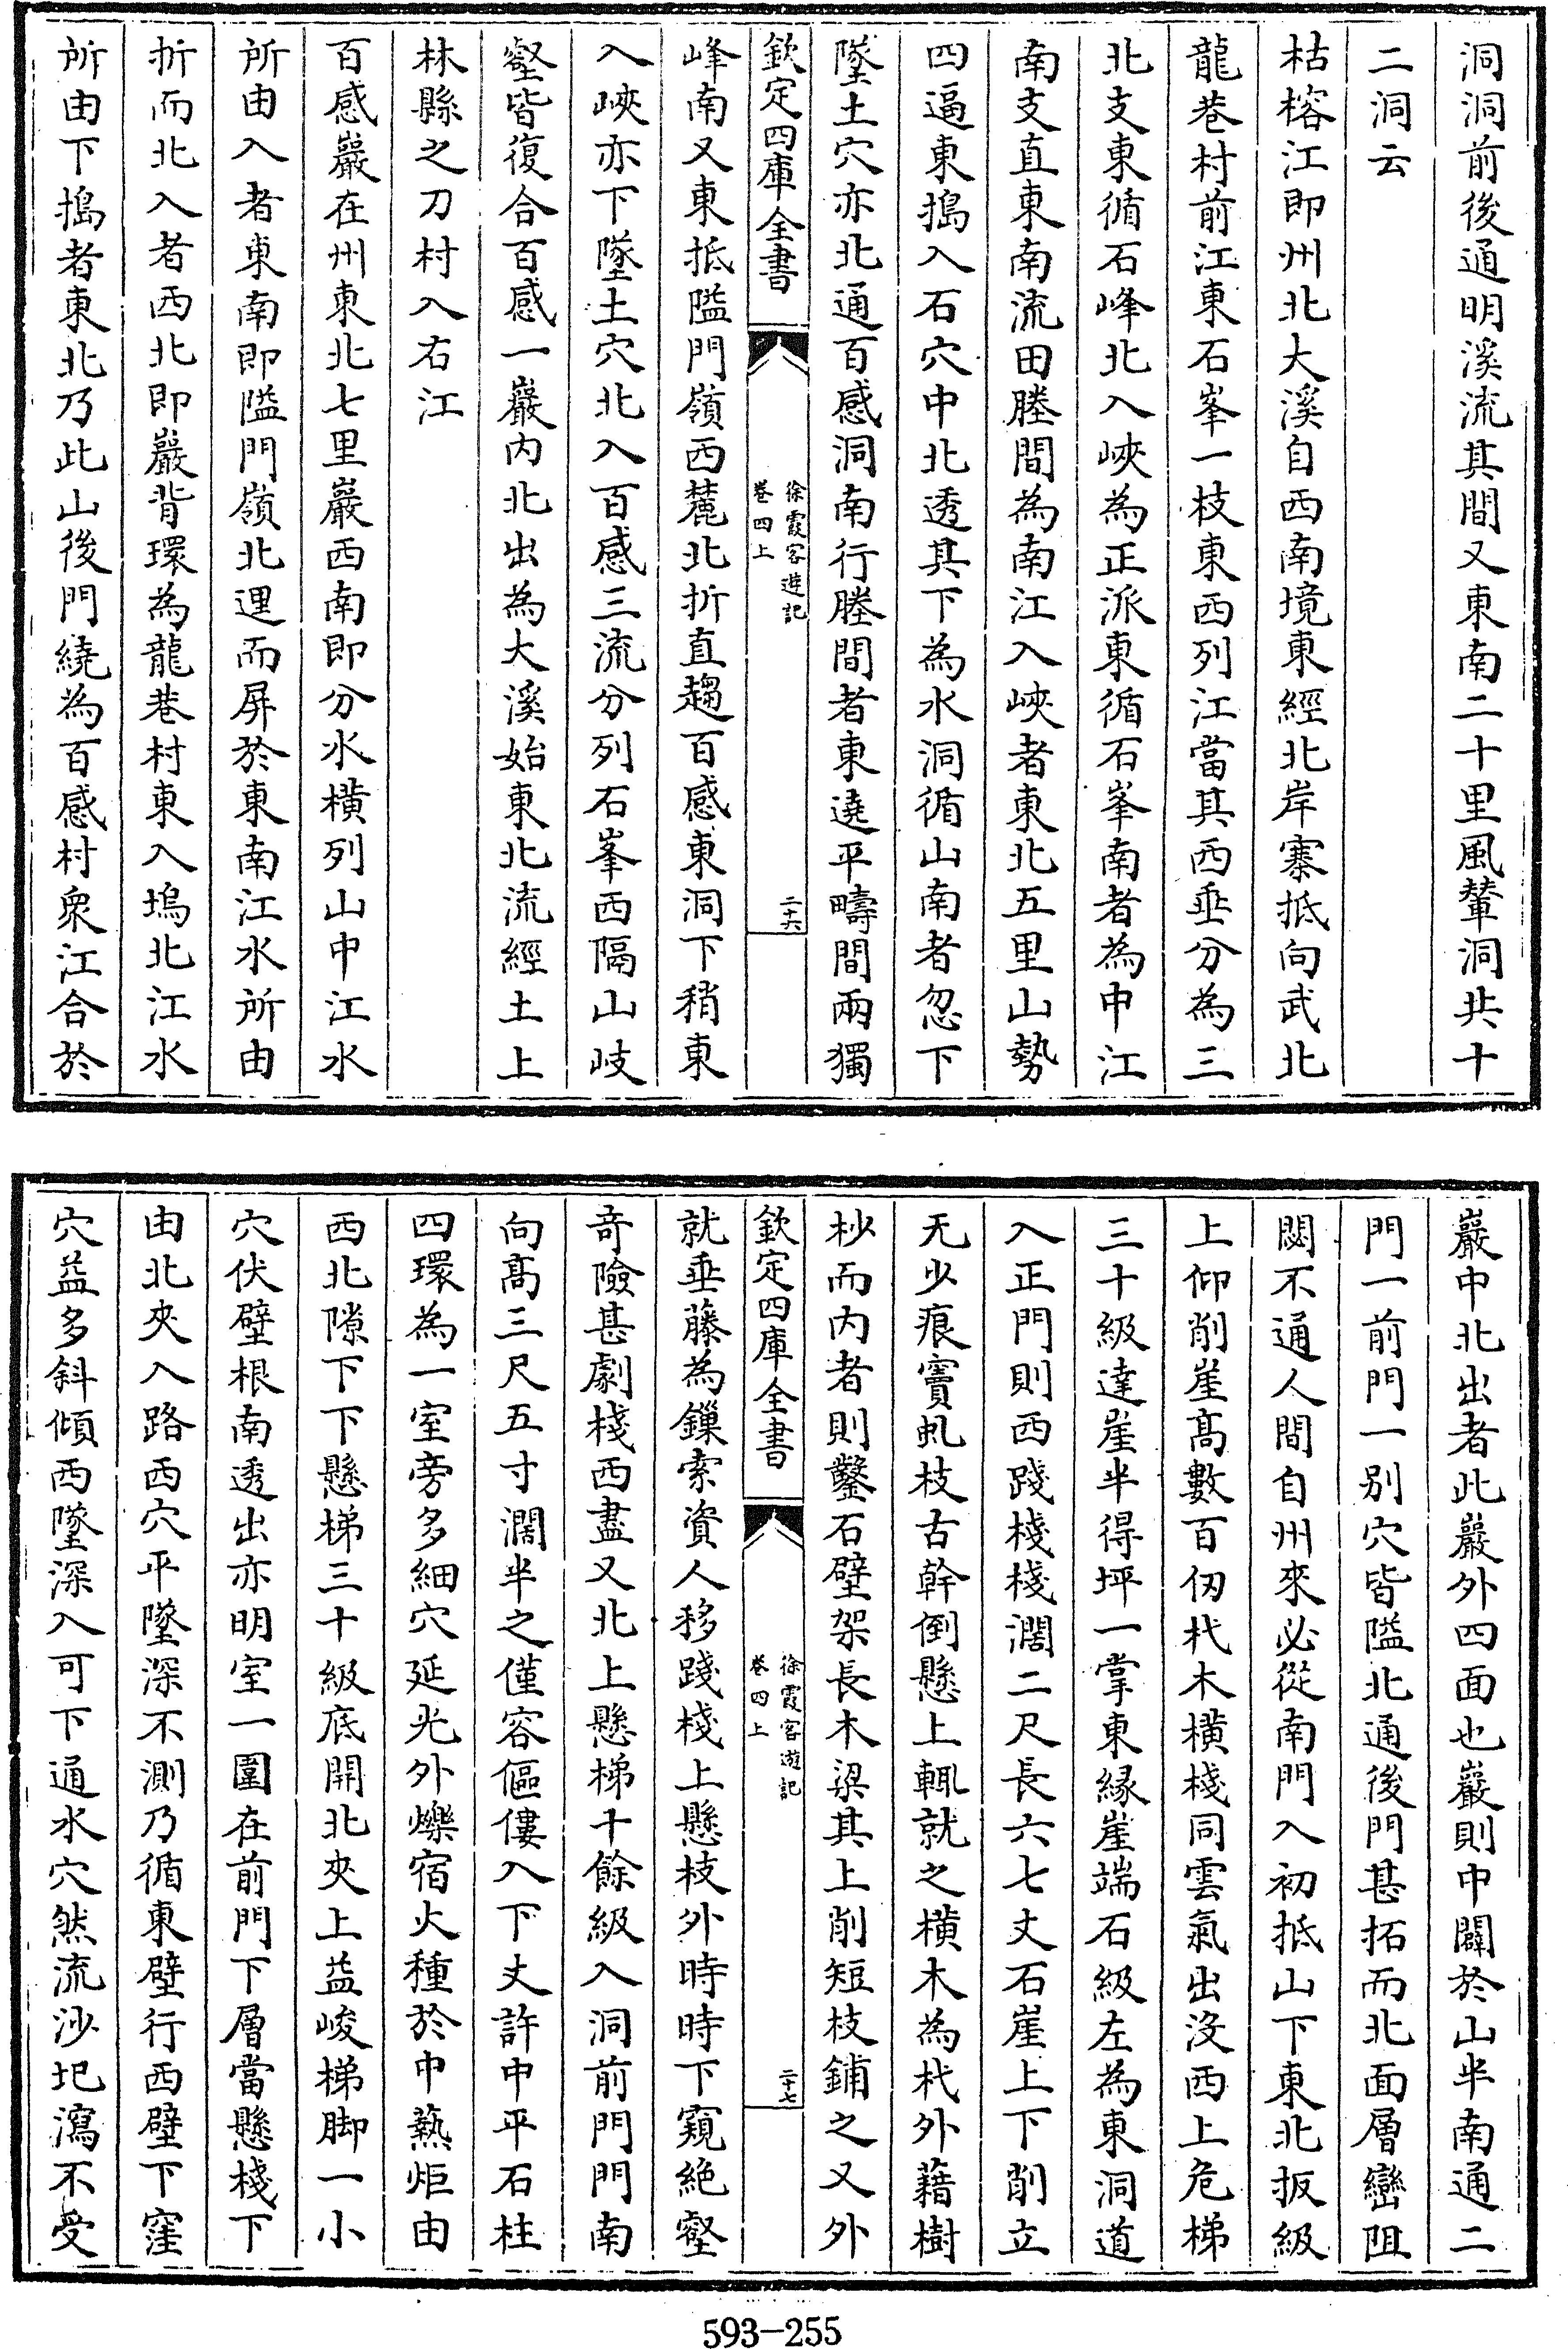 洞洞前後通明溪流其間又東南二十里風輦洞共十
二洞云
枯榕江即州北大溪自西南境東經北岸寨抵向武北
龍巷村前江東石峯一枝東西列江當其西垂分為三
北支東循石峰北入峽為正派東循石峯南者為中江
南支直東南流田塍間為南江入峽者東北五里山勢
四逼東搗入石穴中北透其下為水洞循山南者忽下
墜土穴亦北通百感洞南行塍間者東遶平疇間兩獨
欽定四庫全書
徐霞客遊記
卷四上
二十六
峰南又東抵隘門嶺西麓北折直趨百感東洞下稍東
入峽亦下墜土穴北入百感三流分列石峯西隔山岐
壑皆復合百感一巖内北出為大溪始東北流經土上
林縣之刀村入右江
百感巖在州東北七里巖西南即分水橫列山中江水
所由入者東南即隘門嶺北迴而屏於東南江水所由
折而北入者西北即巖背環為龍巷村東入塢北江水
所由下搗者東北乃此山後門繞為百感村衆江合於
巖中北出者此巖外四面也巖則中闢於山半南通二
門一前門一别穴皆隘北通後門甚拓而北面層巒阻
閟不通人間自州來必從南門入初抵山下東北扳級
上仰削崖髙數百仞杙木橫棧同雲氣出没西上危梯
三十級達崖半得坪一掌東緣崖端石級左為東洞道
入正門則西踐棧棧濶二尺長六七丈石崖上下削立
无少痕竇虬枝古幹倒懸上輒就之橫木為杙外藉樹
杪而内者則鑿石壁架長木梁其上削短枝鋪之又外
欽定四庫全書
徐霞客遊記
卷四上
二十七
就垂藤為鏁索資人移踐棧上懸枝外時時下窺絶壑
奇險甚劇棧西盡又北上懸梯十餘級入洞前門門南
向髙三尺五寸濶半之僅容傴僂入下丈許中平石柱
四環為一室旁多細穴延光外爍宿火種於中爇炬由
西北隙下下懸梯三十級底開北夾上益峻梯脚一小
穴伏壁根南透出亦明室一圍在前門下層當懸棧下
由北夾入路西穴平墜深不測乃循東壁行西壁下窪
穴益多斜傾西墜深入可下通水穴然流沙圯瀉不受
593-255